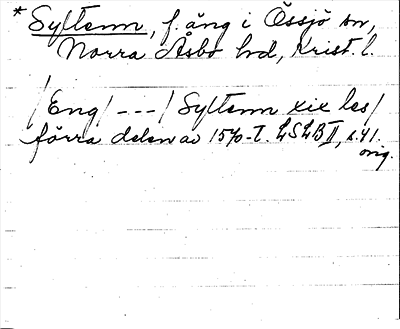 * Syltenn, f. äng i Össjö sn,
Norra Åsbo hd, Krist. l.
/Eng/ --- / Syltenn xix les/
förra delen av 1570-t. LSLB II, s. 41.
orig.